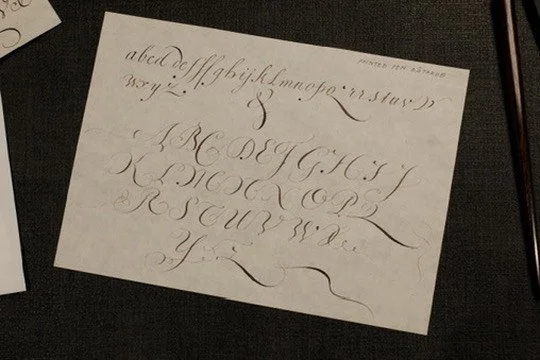 POINTED PEN BATARDE
abcd defffghijklmnopqrrstuv
wxyz
&
ABCDEFGHIJ
KLMNOPQ
RSTUVW
YZ